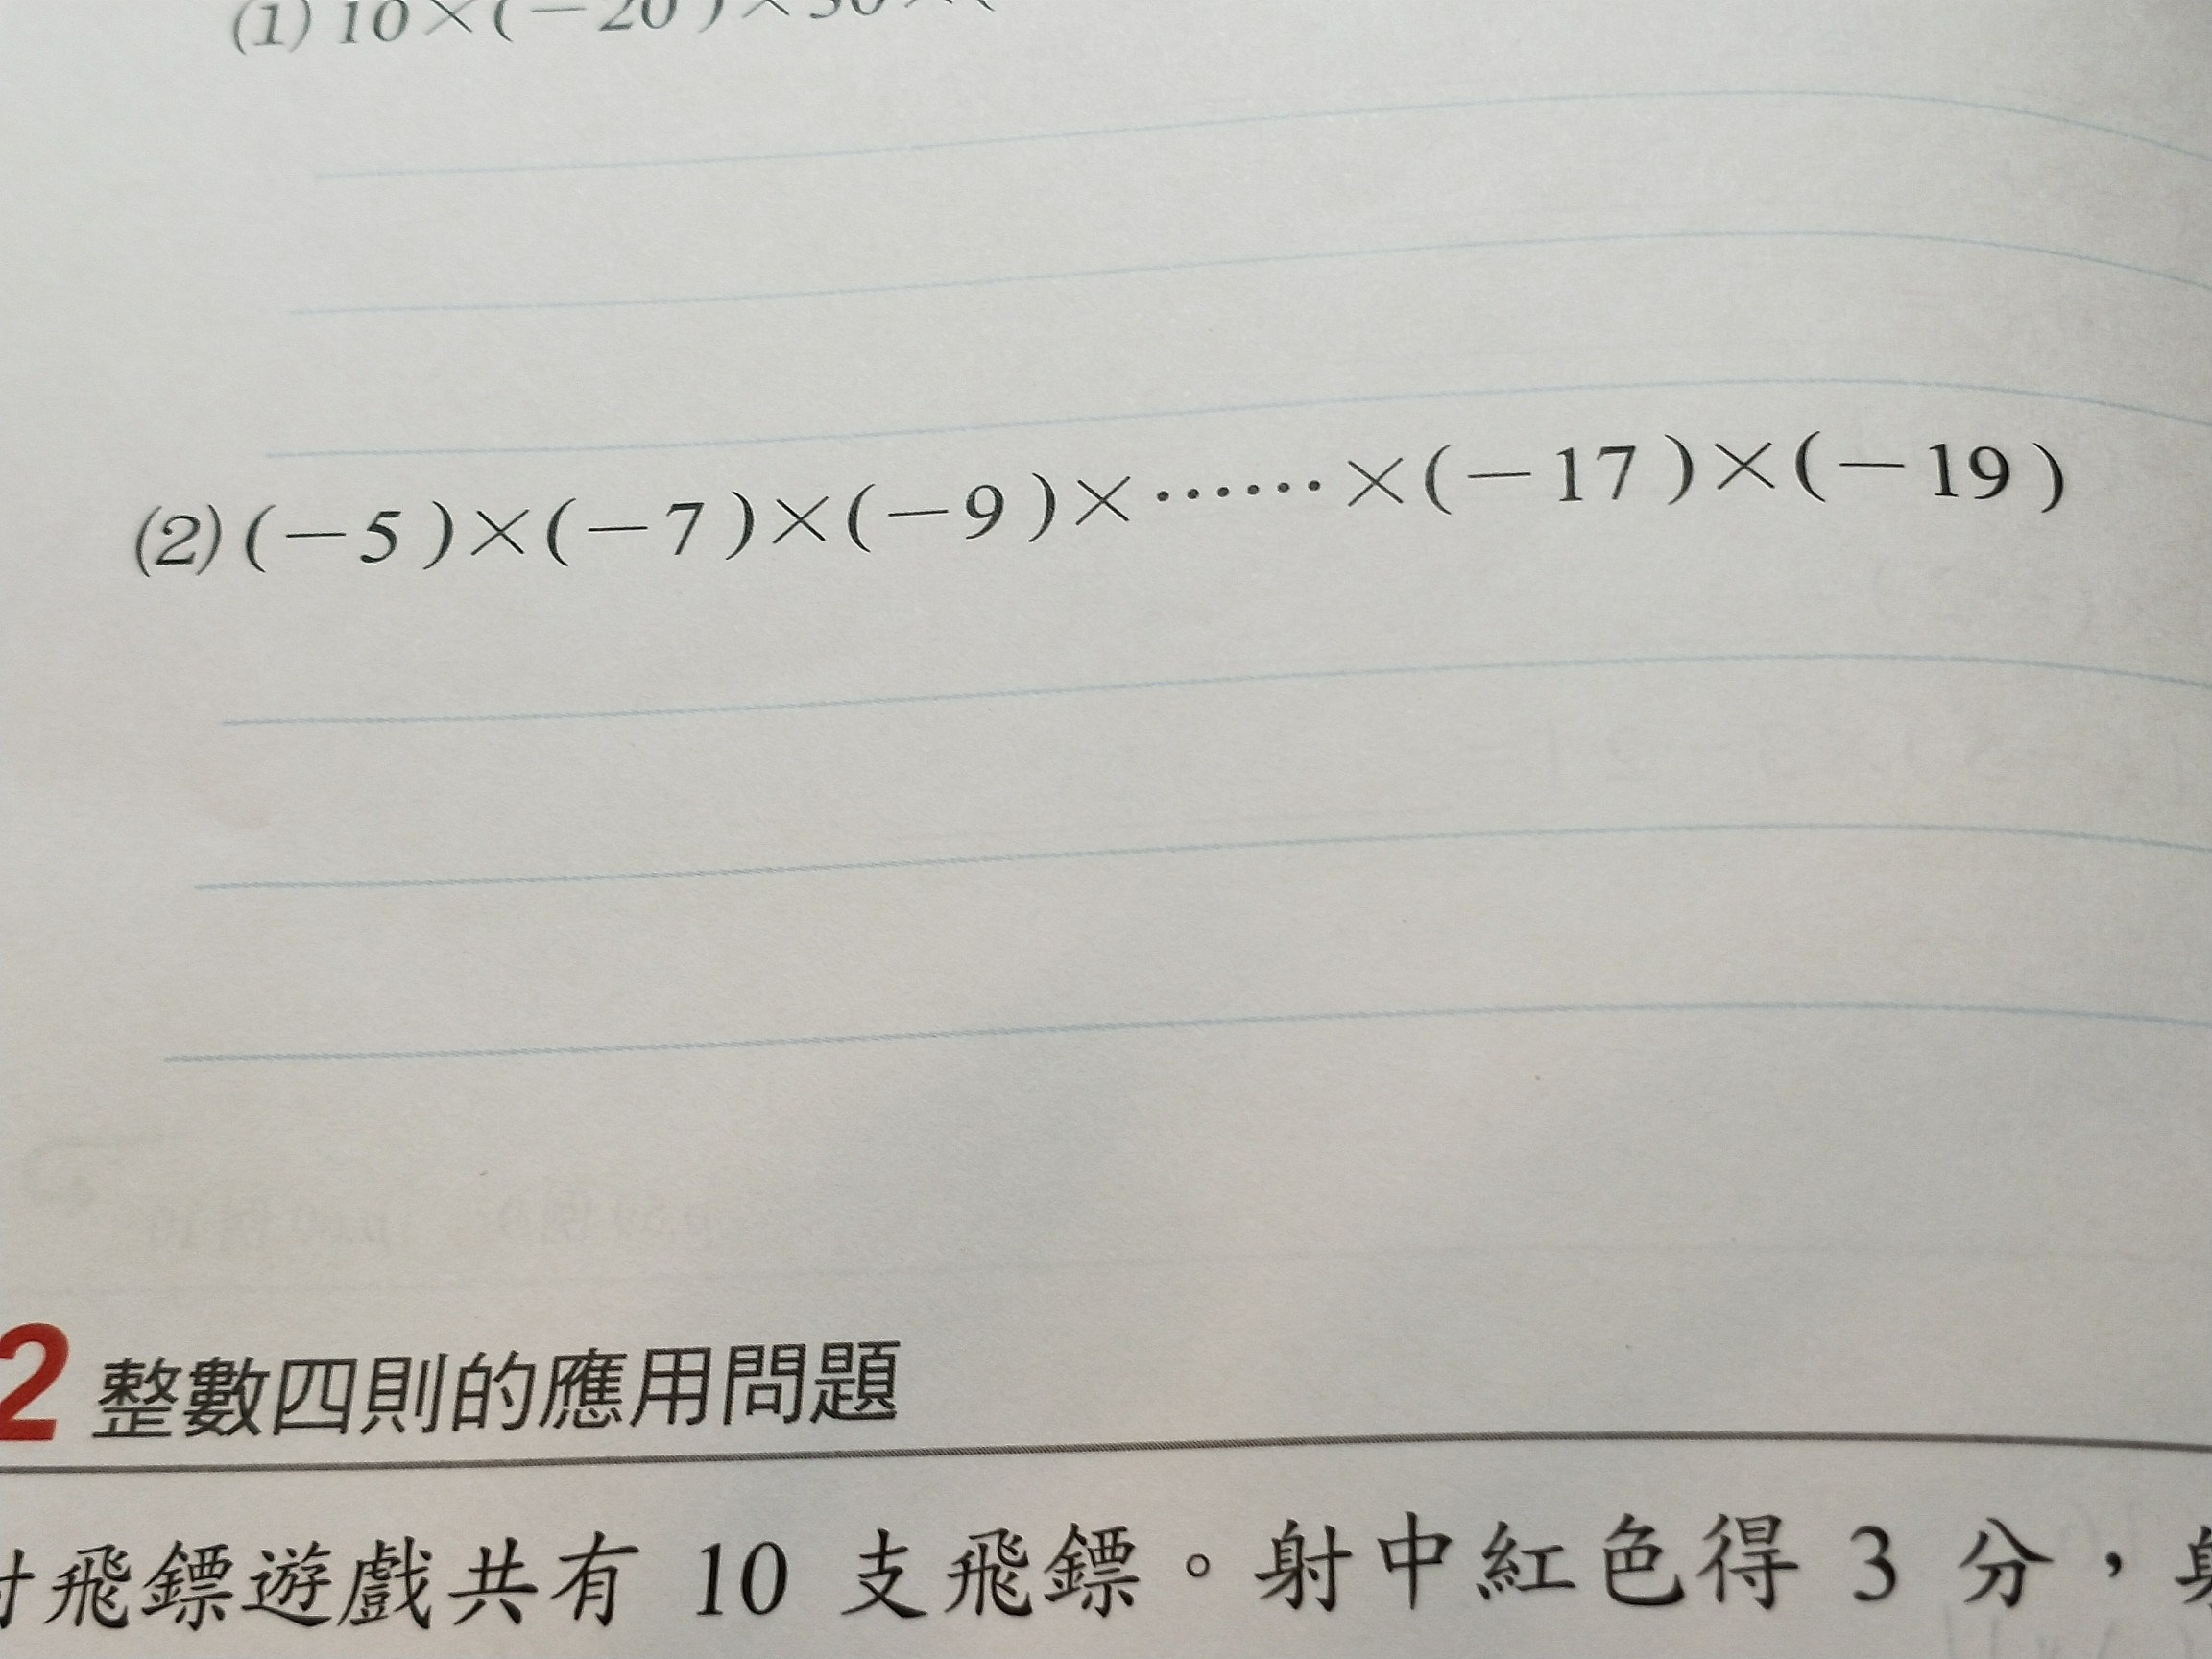 (1) 10×(-20)×30×(
(2) (-5)×(-7)×(-9)×⋯⋯×(-17)×(-19)
2 整數四則的應用問題
射飛鏢遊戲共有 10 支飛鏢。射中紅色得 3 分，